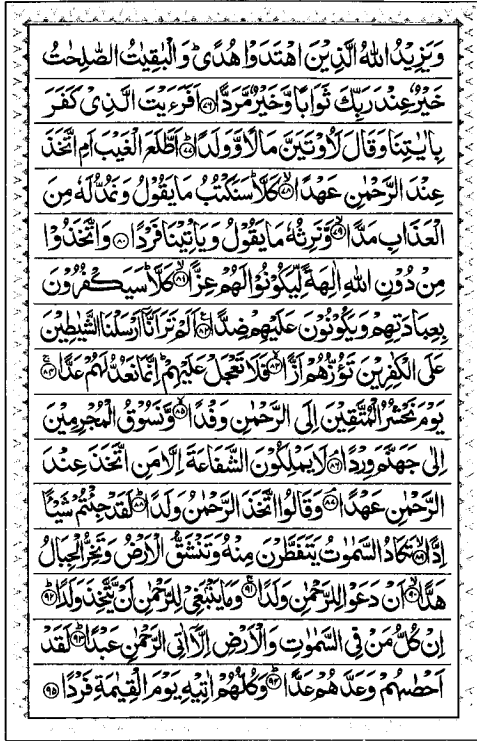 وَيَزِيْدُ اللّٰهُ الَّذِيْنَ اهْتَدَوْا هُدًى ؕ وَالْبٰقِيٰتُ الصّٰلِحٰتُ
خَيْرٌ عِنْدَ رَبِّكَ ثَوَابًا وَّخَيْرٌ مَّرَدًّا ﴿۷۶﴾ اَفَرَءَيْتَ الَّذِىْ كَفَرَ
بِاٰيٰتِنَا وَقَالَ لَاُوْتَيَنَّ مَالًا وَّوَلَدًا ؕ﴿۷۷﴾ اَطَّلَعَ الْغَيْبَ اَمِ اتَّخَذَ
عِنْدَ الرَّحْمٰنِ عَهْدًا ۙ﴿۷۸﴾ كَلَّا ؕ سَنَكْتُبُ مَا يَقُوْلُ وَنَمُدُّ لَهٗ مِنَ
الْعَذَابِ مَدًّا ۙ﴿۷۹﴾ وَّنَرِثُهٗ مَا يَقُوْلُ وَيَاْتِيْنَا فَرْدًا ﴿۸۰﴾ وَاتَّخَذُوْا
مِنْ دُوْنِ اللّٰهِ اٰلِهَةً لِّيَكُوْنُوْا لَهُمْ عِزًّا ۙ﴿۸۱﴾ كَلَّا ؕ سَيَكْفُرُوْنَ
بِعِبَادَتِهِمْ وَيَكُوْنُوْنَ عَلَيْهِمْ ضِدًّا ﴿۸۲﴾ اَلَمْ تَرَ اَنَّاۤ اَرْسَلْنَا الشَّيٰطِيْنَ
عَلَى الْكٰفِرِيْنَ تَؤُزُّهُمْ اَزًّا ۙ﴿۸۳﴾ فَلَا تَعْجَلْ عَلَيْهِمْ ؕ اِنَّمَا نَعُدُّ لَهُمْ عَدًّا ﴿۸۴﴾
يَوْمَ نَحْشُرُ الْمُتَّقِيْنَ اِلَى الرَّحْمٰنِ وَفْدًا ۙ﴿۸۵﴾ وَّنَسُوْقُ الْمُجْرِمِيْنَ
اِلٰى جَهَنَّمَ وِرْدًا ۘ﴿۸۶﴾ لَا يَمْلِكُوْنَ الشَّفَاعَةَ اِلَّا مَنِ اتَّخَذَ عِنْدَ
الرَّحْمٰنِ عَهْدًا ۘ﴿۸۷﴾ وَقَالُوا اتَّخَذَ الرَّحْمٰنُ وَلَدًا ؕ﴿۸۸﴾ لَقَدْ جِئْتُمْ شَيْـًٔا
اِدًّا ۙ﴿۸۹﴾ تَكَادُ السَّمٰوٰتُ يَتَفَطَّرْنَ مِنْهُ وَتَنْشَقُّ الْاَرْضُ وَتَخِرُّ الْجِبَالُ
هَدًّا ۙ﴿۹۰﴾ اَنْ دَعَوْا لِلرَّحْمٰنِ وَلَدًا ۚ﴿۹۱﴾ وَمَا يَنْۢبَغِىْ لِلرَّحْمٰنِ اَنْ يَّتَّخِذَ وَلَدًا ؕ﴿۹۲﴾
اِنْ كُلُّ مَنْ فِى السَّمٰوٰتِ وَالْاَرْضِ اِلَّاۤ اٰتِى الرَّحْمٰنِ عَبْدًا ؕ﴿۹۳﴾ لَقَدْ
اَحْصٰٮهُمْ وَعَدَّهُمْ عَدًّا ؕ﴿۹۴﴾ وَكُلُّهُمْ اٰتِيْهِ يَوْمَ الْقِيٰمَةِ فَرْدًا ﴿۹۵﴾